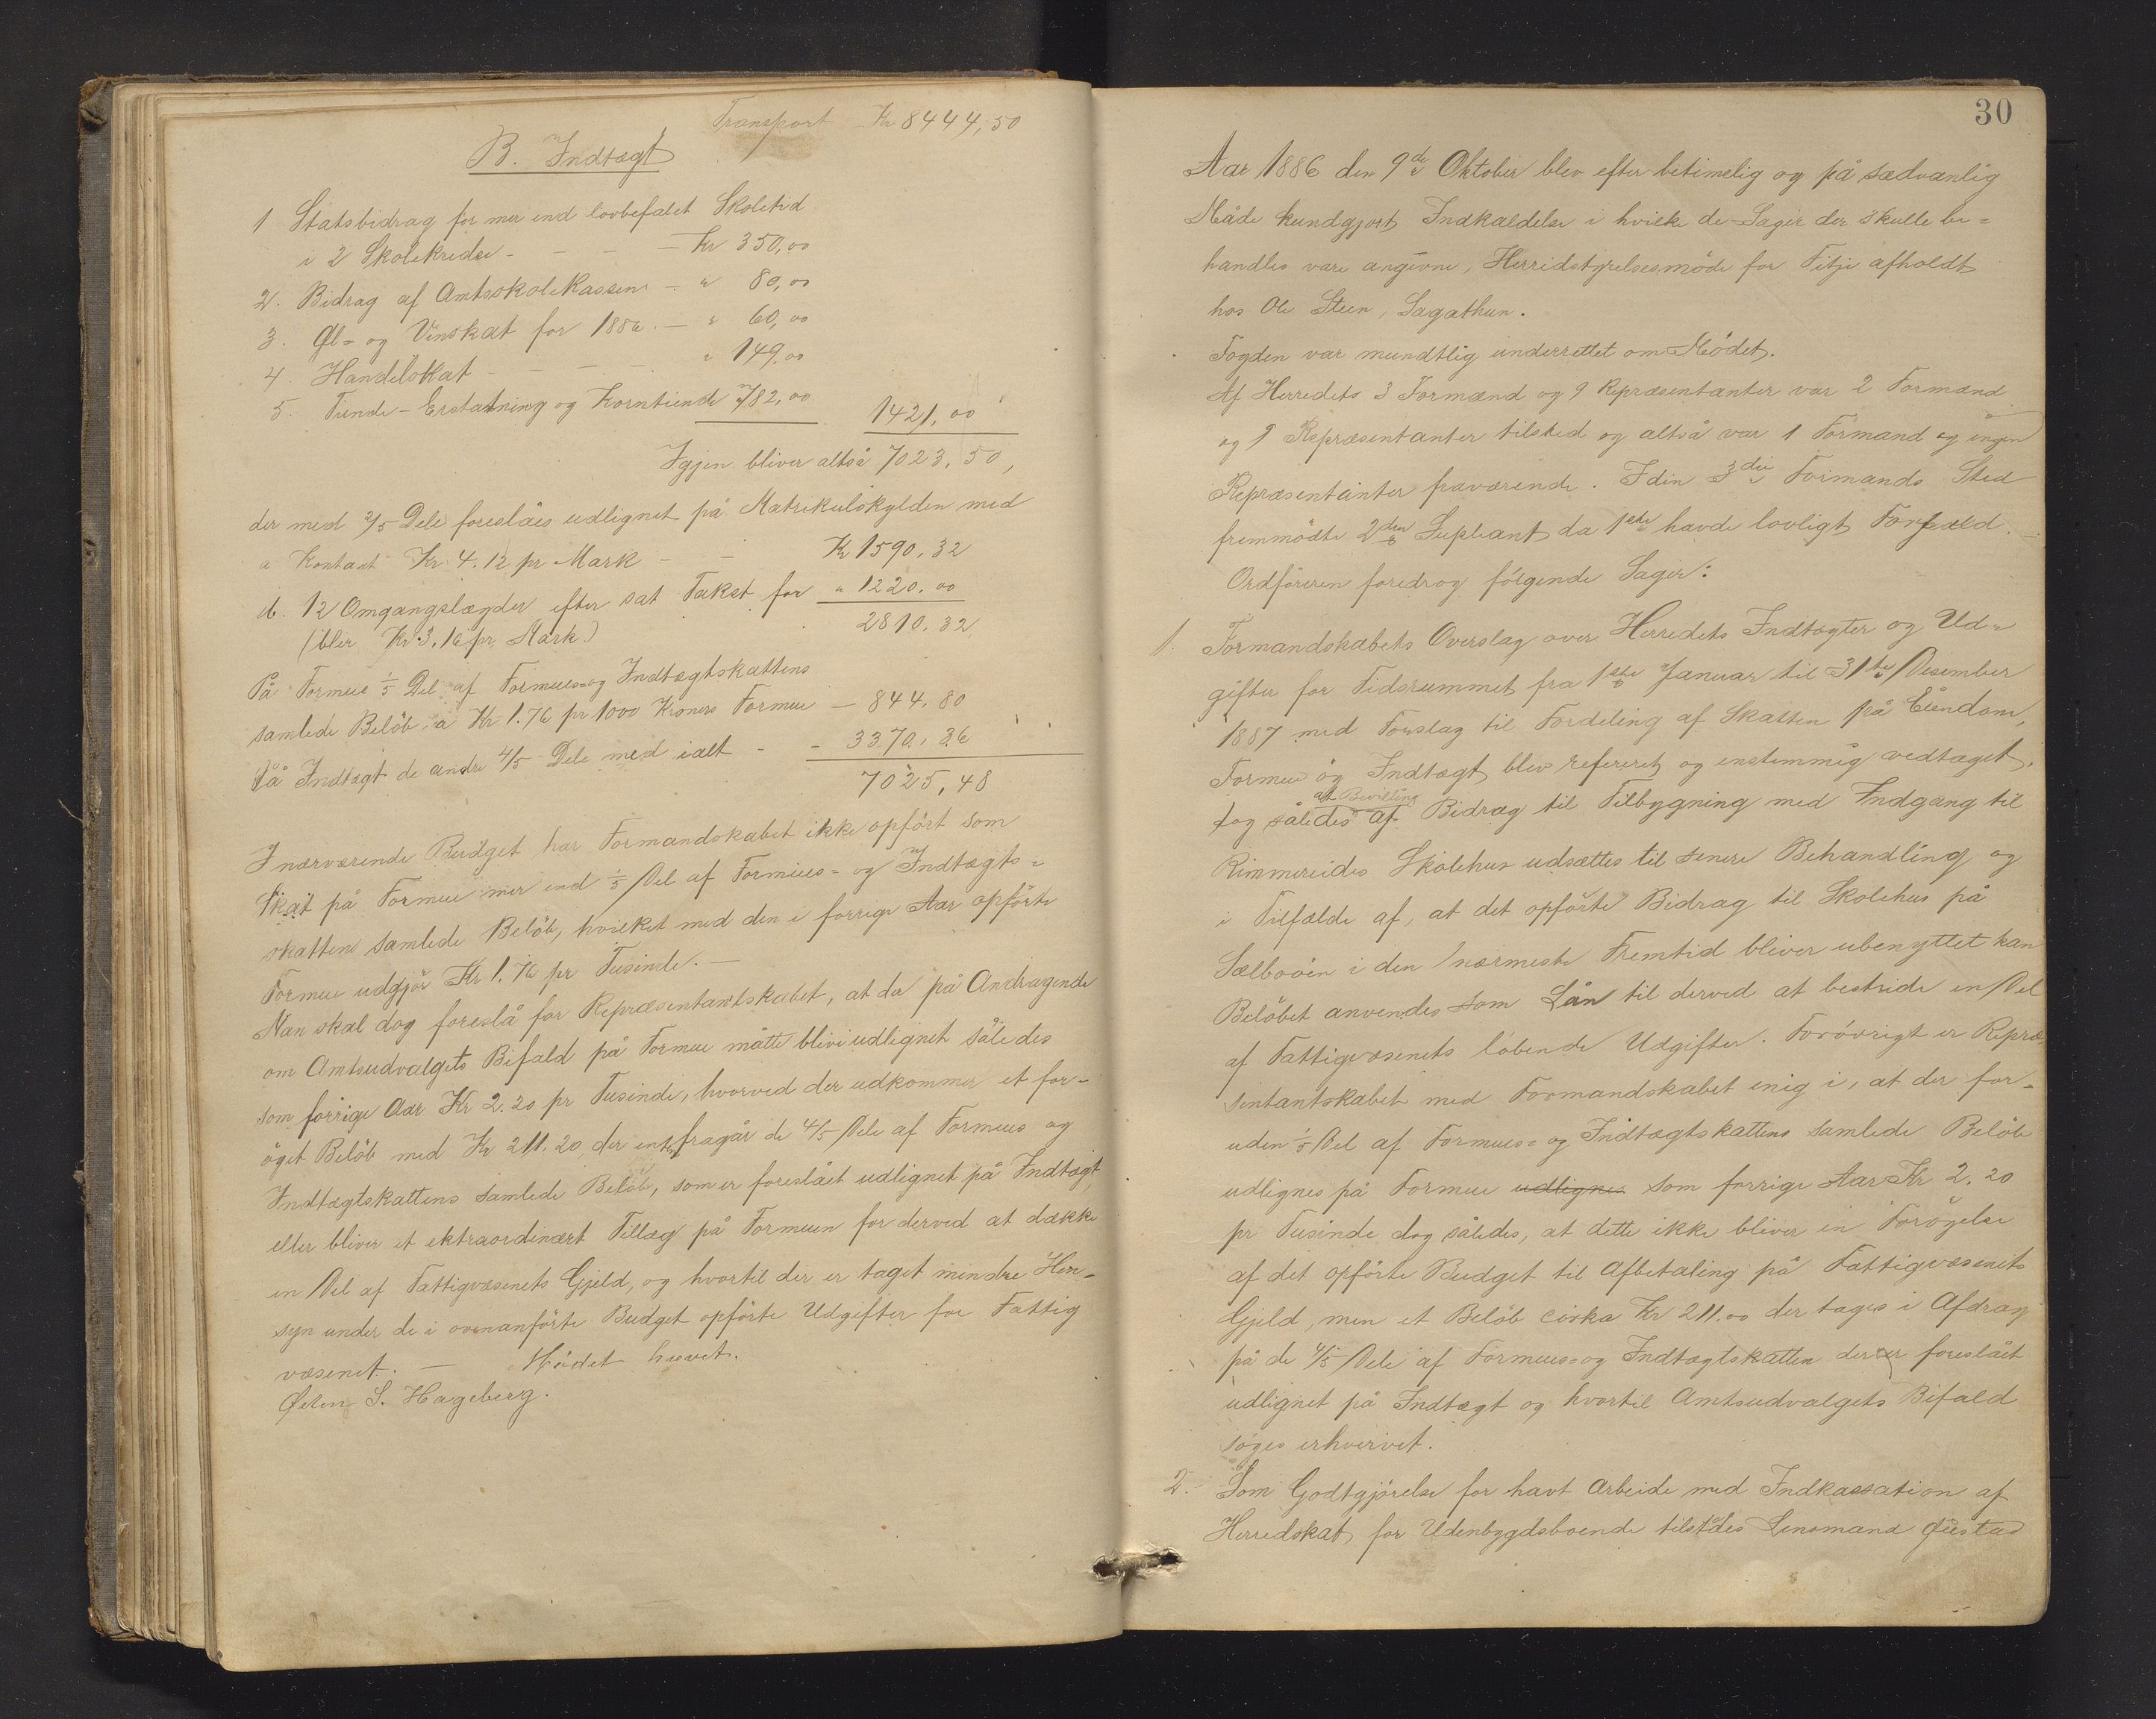 Transport Kr 8444,50
B. Indtægt
1 Statsbidrag for mer end lovbefalet Skoletid
i 2 Skolekredse - - - Kr 350,00
2. Bidrag af Amtsskolekassen - " 80,00
3. Øl- og Vinskat for 1886. - " 60,00
4. Handelskat - - - " 149,00
5. Tiende-Erstatning og Korntiende 782,00 1421,00
Igjen bliver altså 7023,50,
der med 2/5 Dele foreslåes udlignet på Matrikulskylden med
a Kontant Kr. 4.12 pr Mark - - Kr 1590,32
b. 12 Omgangslægder efter sat Takst for " 1220.00
(bler Kr 3.16 pr Mark) 2810.32
På Formue 1/5 Del af Formues- og Indtægtskattens
samlede Beløb a Kr 1.76 pr 1000 Kroners Formue - 844.80
På Indtægt de andre 4/5 Dele med ialt - - 3370.36
7025,48
I nærværende Budget har Formandskabet ikke opført som
Skat på Formue mer end 1/5 Del af Formues- og Indtægts=
skattens samlede Beløb, hvilket med den i forrige Aar opførte
Formue udgjør Kr 1.76 pr Tusinde. -
Man skal dog foreslå for Repræsentantskabet, at der på Andragende
om Amtsudvalgets Bifald på Formue måtte blive udlignet således
som forrige Aar Kr 2.20 pr Tusinde, hvorved der udkommer et for-
øget Beløb med Kr 211.20 der enten fragår de 4/5 Dele af Formues og
Indtægtskattens samlede Beløb, som er foreslået udlignet på Indtægt,
eller bliver et ektraordinært Tillæg på Formuen for derved at dække
en Del af Fattigvæsenets Gjeld, og hvortil der er taget mindre Hen-
syn under de i ovenanførte Budget opførte Udgifter for Fattig
væsenet. - Mødet hævet.
Østen S. Hageberg.
30
Aar 1886 den 9de Oktober blev efter betimelig og på sædvanlig
Måde kundgjort Indkaldelse i hvilke de Sager der skulle be=
handles vare angivne, Herridstyrelsesmøde for Fitje afholdt
hos Ole Steen, Sagathun.
Fogden var mundtlig underrettet om Mödet.
Af Herredets 3 Formænd og 9 Repræsentanter var 2 Formænd
og 9 Repræsentanter tilsted og altså var 1 Formand og ingen
Repræsentanter fraværende. I den 3die Formands Sted
fremmödte 2den Supleant da 1ste havde lovligt Forfæld.
Ordföreren foredrog fölgende Sager:
1. Formandskabets Overslag over Herredets Indtægter og Ud=
gifter for Tidsrummet fra 1ste Januar til 31te Desember
1887 med Forslag til Fordeling af Skatten på Eiendom,
Formue og Indtægt blev refereret og enstemmig vedtaget,
at Bevilling
dog således af Bidrag til Tilbygning med Indgang til
Rimmereides Skolehus udsættes til senere Behandling og
i Tilfælde af, at det opförte Bidrag til Skolehus på
Sælbovön i den nærmeste Fremtid bliver ubenyttet kan
Belöbet anvendes som Lån til derved at bestride en Del
af Fattigvæsenets löbende Udgifter. Forövrigt er Repræ
sentantskabet med Formandskabet enig i, at der for=
uden 1/5 Del af Formues= og Indtægtskattens samlede Belöb
udlignes på Formue udlignes som forrige Aar Kr 2.20
pr Tusinde dog således, at dette ikke bliver en Forögelse
af det opförte Budget til Afbetaling på Fattigvæsenets
Gjeld, men et Belöb cirka Kr 211.00 der tages i Afdrag
på de 4/5 Dele af Formues= og Indtægtskatten der er foreslået
udlignet på Indtægt og hvortil Amtsudvalgets Bifald
söges erhvervet.
2. Som Godtgjörelse for havt Arbeide med Indkassation af
Herredskat for Udenbygdsboende tilståes Lensmand Øiestad